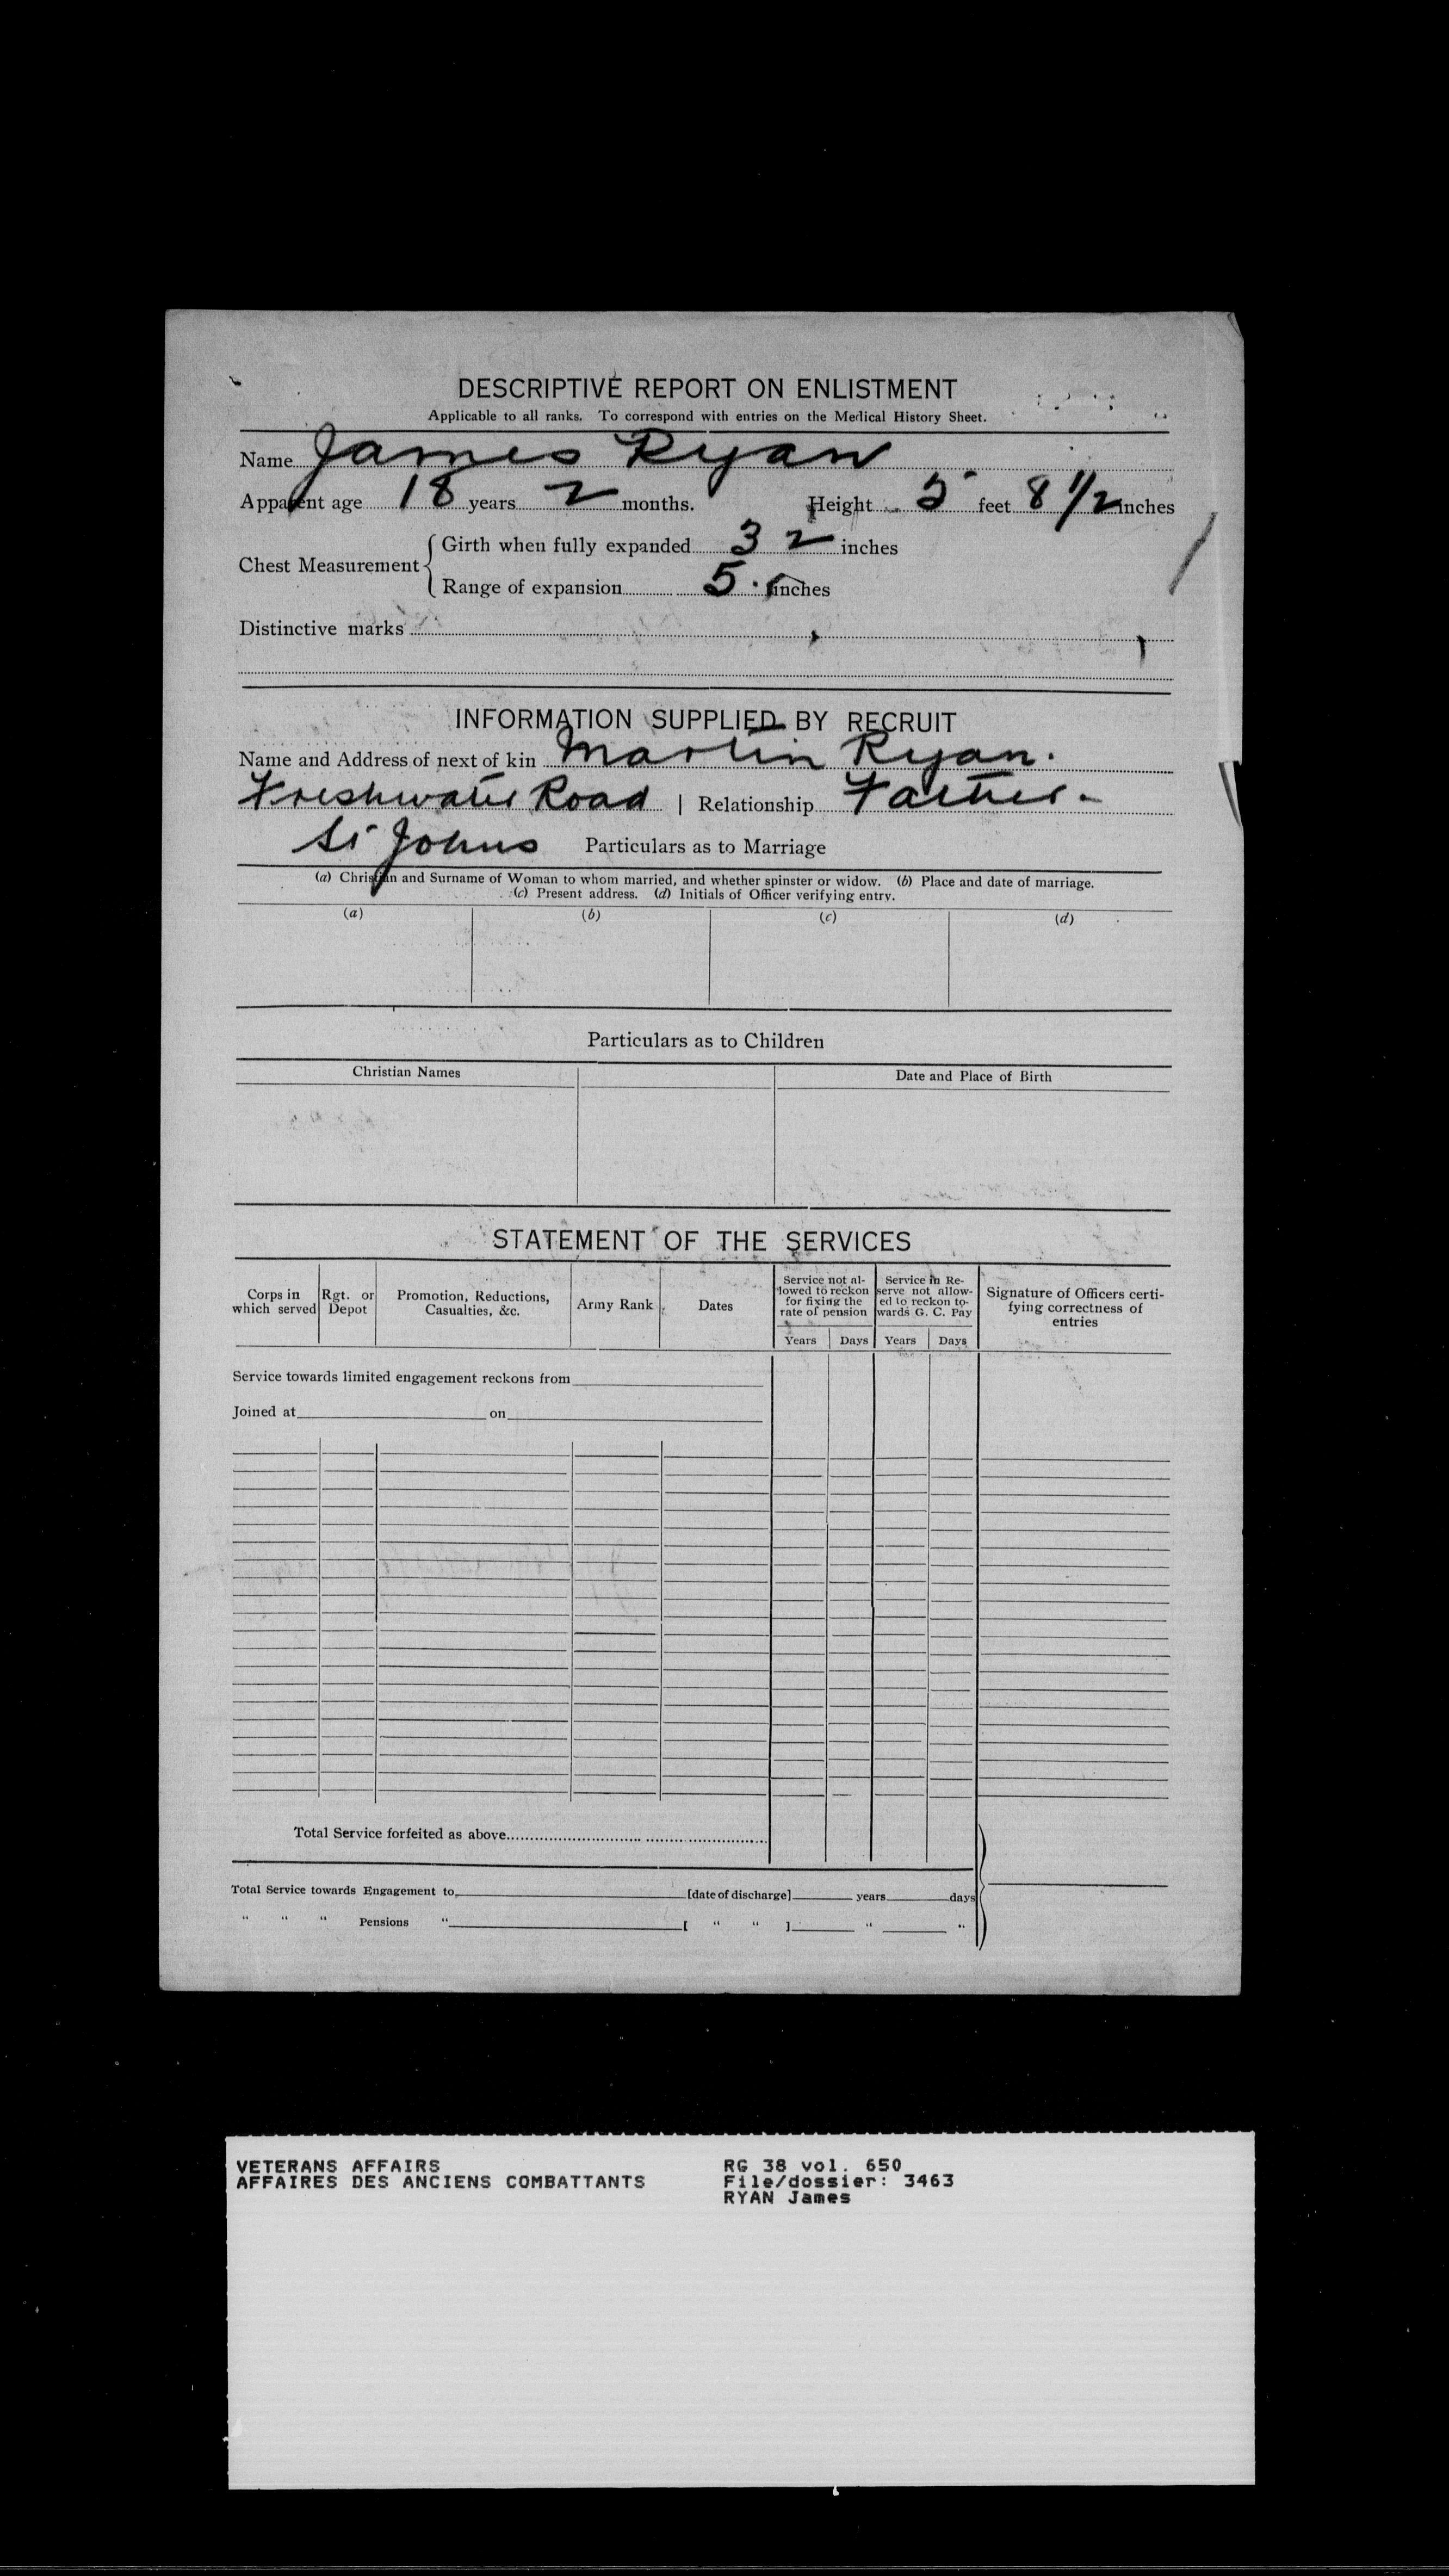 DESCRIPTIVE REPORT ON ENLISTMENT
Applicable to all ranks. To correspond with entries on the Medical History Sheet.
Name James Ryan
Apparent age 18 years 2 months. Height 5 feet 8 1/2 inches
Chest Measurement { Girth when fully expanded 32 inches
Range of expansion 5. inches
Distinctive marks
INFORMATION SUPPLIED BY RECRUIT
Name and Address of next of kin Martin Ryan.
Freshwater Road | Relationship Father.
St Johns Particulars as to Marriage
(a) Christian and Surname of Woman to whom married, and whether spinster or widow. (b) Place and date of marriage.
(c) Present address. (d) Initials of Officer verifying entry.
(a) (b) (c) (d)
Particulars as to Children
Christian Names Date and Place of Birth
STATEMENT OF THE SERVICES
Corps in which served Rgt. or Depot Promotion, Reductions, Casualties, &c. Army Rank Dates Service not allowed to reckon for fixing the rate of pension Service in Reserve not allowed to reckon towards G. C. Pay Signature of Officers certifying correctness of entries
Years Days Years Days
Service towards limited engagement reckons from
Joined at on
Total Service forfeited as above
Total Service towards Engagement to [date of discharge] years days
" " " Pensions " [ " " ] " "
VETERANS AFFAIRS RG 38 vol. 650
AFFAIRES DES ANCIENS COMBATTANTS File/dossier: 3463
RYAN James